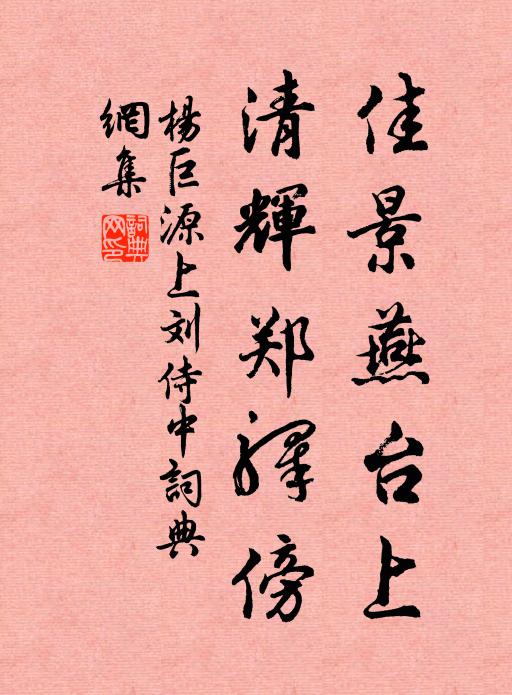 佳景燕台上
清輝郑驛傍
楊巨源上刘侍中詞典
網集
詞典網印